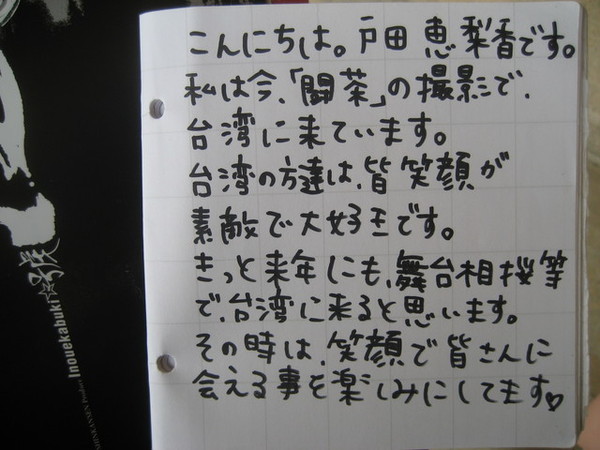 こんにちは。戸田 恵梨香です。
私は今、「闘茶」の撮影で、
台湾に来ています。
台湾の方達は、皆笑顔が
素敵で大好きです。
きっと来年にも、舞台相等
で、台湾に来ると思います。
その時は、笑顔で皆さんに
会える事を楽しみにしてます♡
Inouekabuki☆